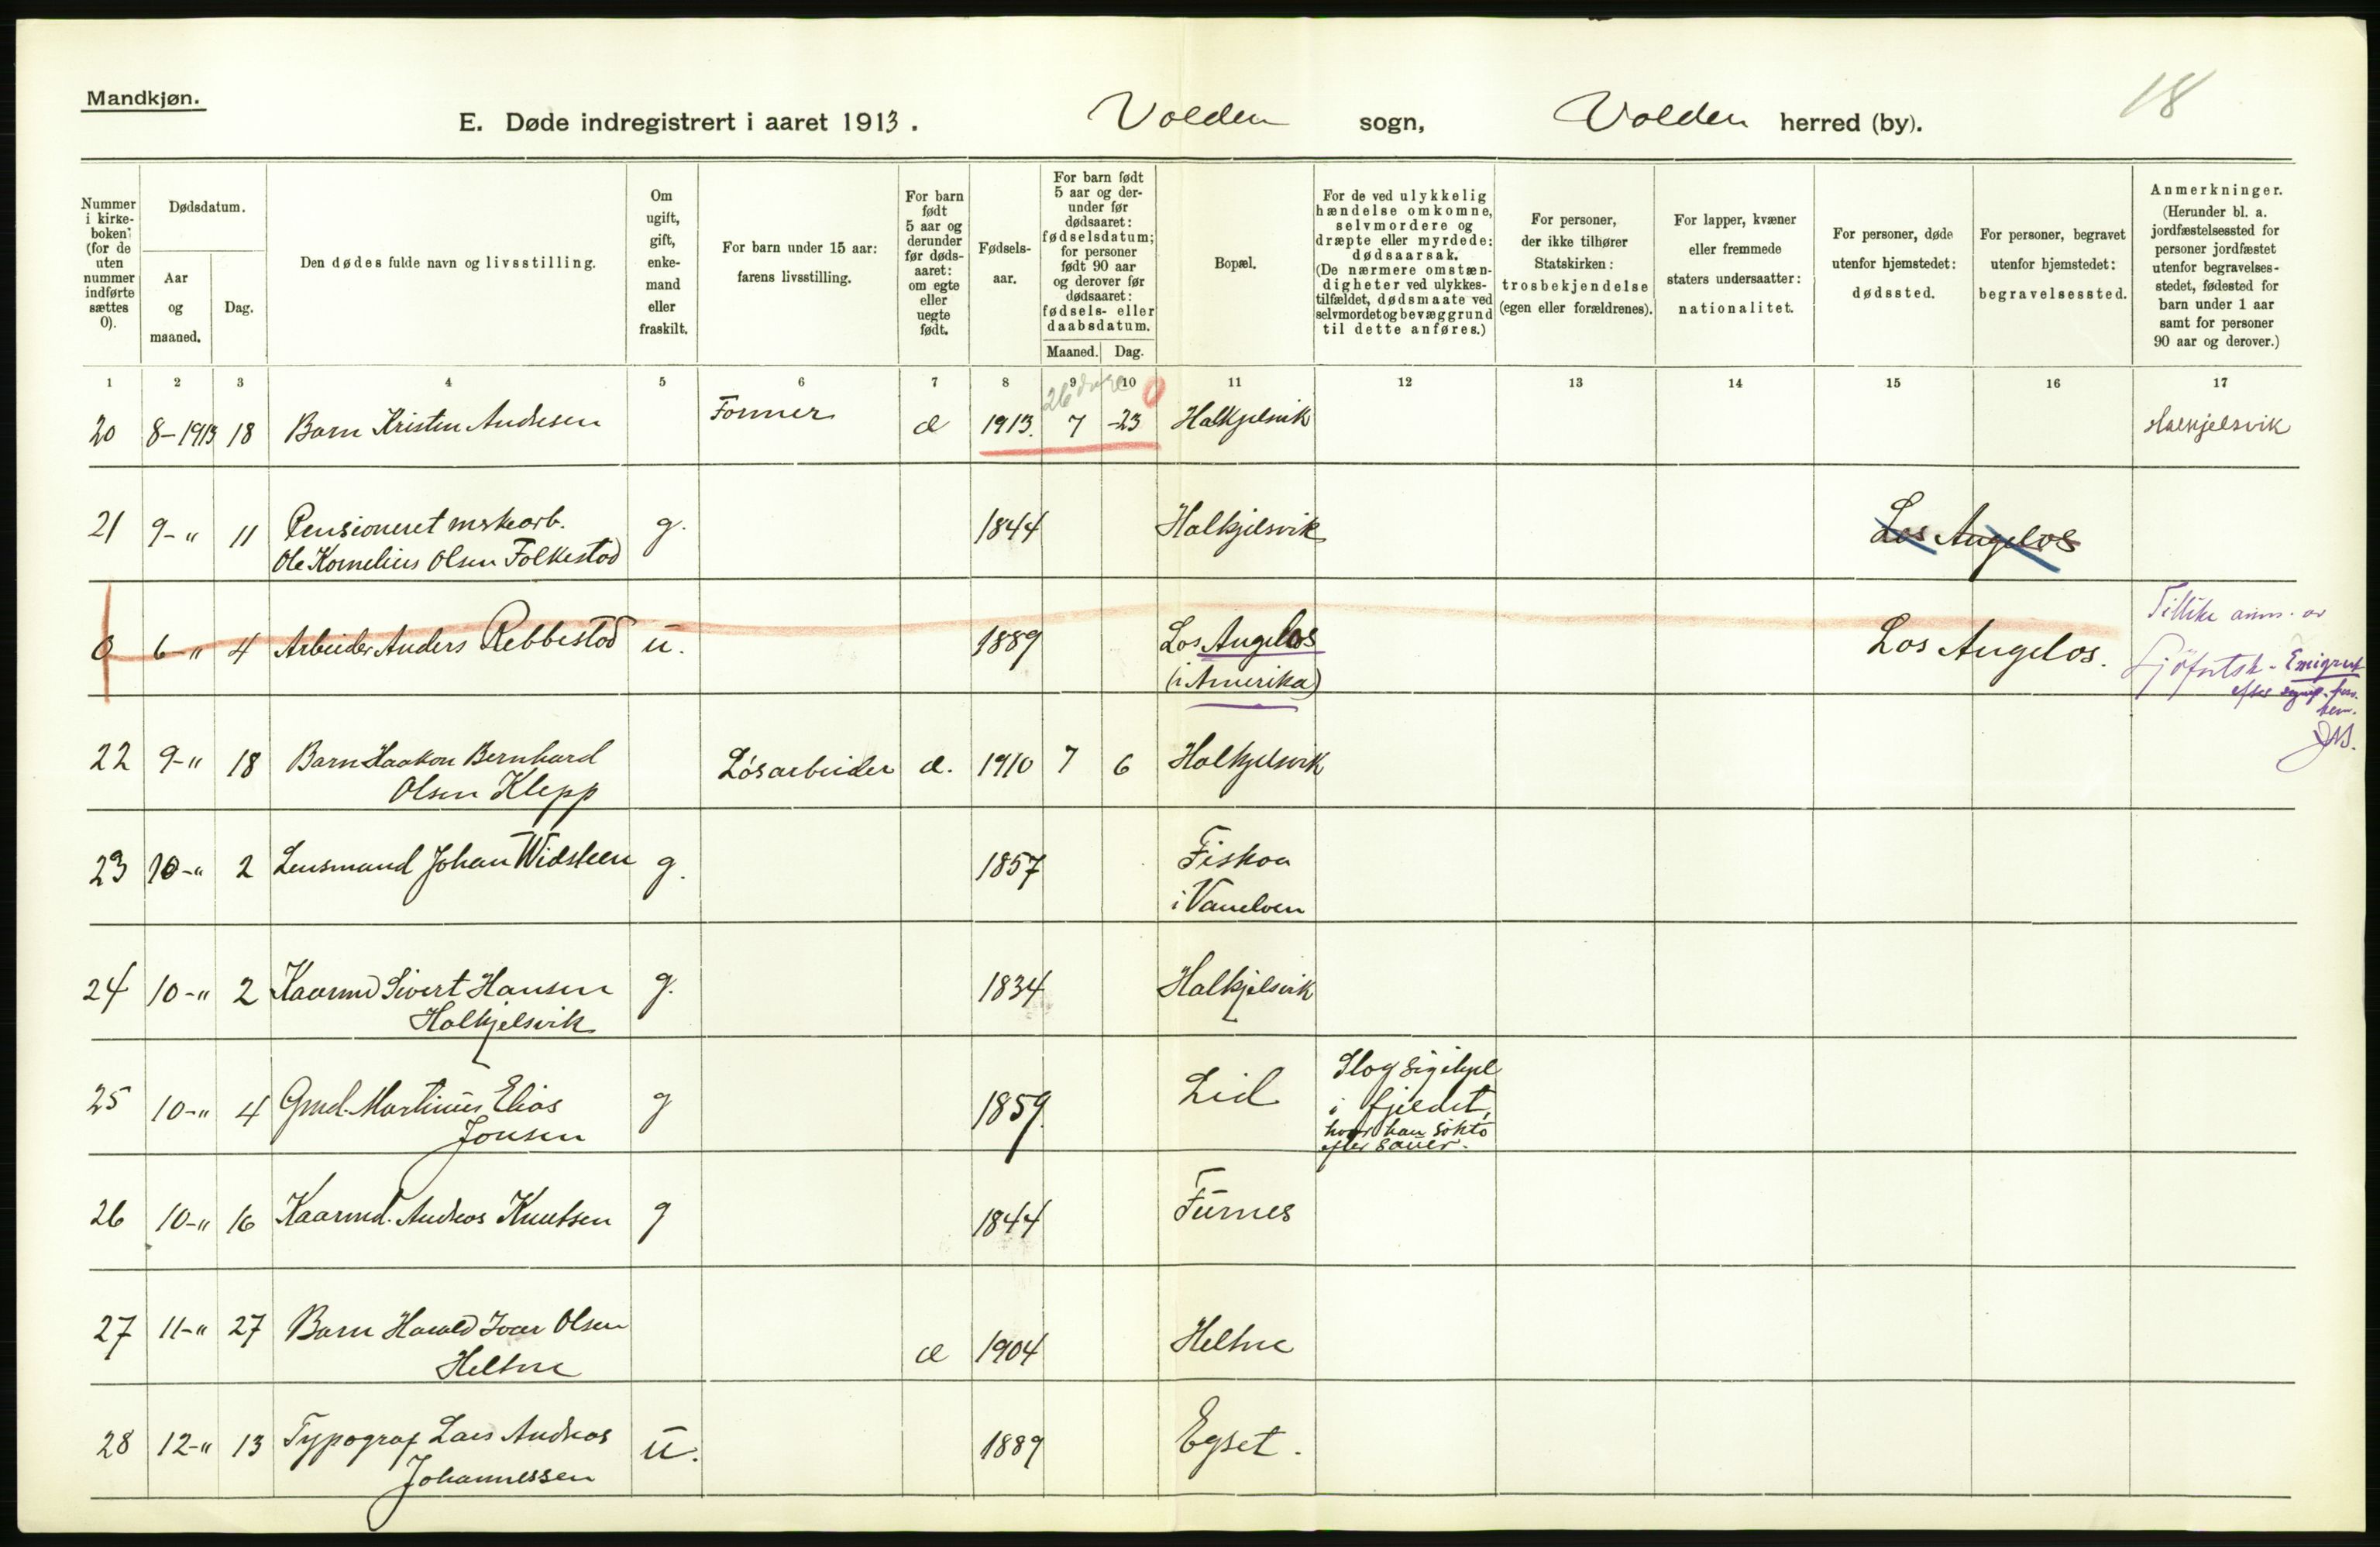 Mandkjøn.
18
E. Døde indregistrert i aaret 1913. Volden sogn, Volden herred (by).
Nummer i kirke-boken (for de uten nummer indførte sættes 0).
Dødsdatum.
Aar og maaned.
Dag.
Den dødes fulde navn og livsstilling.
Om ugift, gift, enke-mand eller fraskilt.
For barn under 15 aar: farens livsstilling.
For barn født 5 aar og derunder før døds-aaret: om egte eller uegte født.
Fødsels-aar.
For barn født 5 aar og der-under før dødsaaret: fødselsdatum; for personer født 90 aar og derover før dødsaaret: fødsels- eller daabsdatum.
Maaned. Dag.
Bopæl.
For de ved ulykkelig hændelse omkomne, selvmordere og dræpte eller myrdede: dødsaarsak. (De nærmere omstæn-digheter ved ulykkes-tilfældet, dødsmaate ved selvmordet og bevæggrund til dette anføres.)
For personer, der ikke tilhører Statskirken: trosbekjendelse (egen eller forældrenes).
For lapper, kvæner eller fremmede staters undersaatter: nationalitet.
For personer, døde utenfor hjemstedet: dødssted.
For personer, begravet utenfor hjemstedet: begravelsessted.
Anmerkninger. (Herunder bl. a. jordfæstelsessted for personer jordfæstet utenfor begravelses-stedet, fødested for barn under 1 aar samt for personer 90 aar og derover.)
1 2 3 4 5 6 7 8 9 10 11 12 13 14 15 16 17
26 0
20 8-1913 18 Barn Kristen Andresen Former e 1913. 7 -23 Halkjelsvik Halkjelsvik
21 9-" 11 Pensioneret mskearb. g. 1844 Halkjelsvik Los Angelos
Ole Kornelius Olsen Folkestad
0 6-" 4 Arbeider Anders Rebbestad u. 1889 Los Angelos Los Angelos.
(i Amerika)
Tillike anm. av
Sjöfartsk- Emigrant
efter
JN.
22 9-" 18 Barn Haakon Bernhard Løsarbeider e. 1910 7 6 Halkjelsvik
Olsen Klepp
23 10-" 2 Lensmand Johan Widsteen g. 1857 Fiskaa
i Vanelven
24 10-" 2 Kaarmd Sivert Hansen g. 1834 Halkjelsvik
Halkjelsvik
25 10-" 4 Gmd. Martinus Elias g 1859. Lid Slog sig ihjel
Jonsen i fjeldet,
hvor han søkte
efter sauer.
26 10-" 16 Kaarmd. Andreas Knutsen g 1844 Furnes
27 11-" 27 Barn Harald Ivar Olsen e 1904 Heltne
Heltne
28 12-" 13 Typograf Lars Andreas u. 1889 Egset.
Johannessen